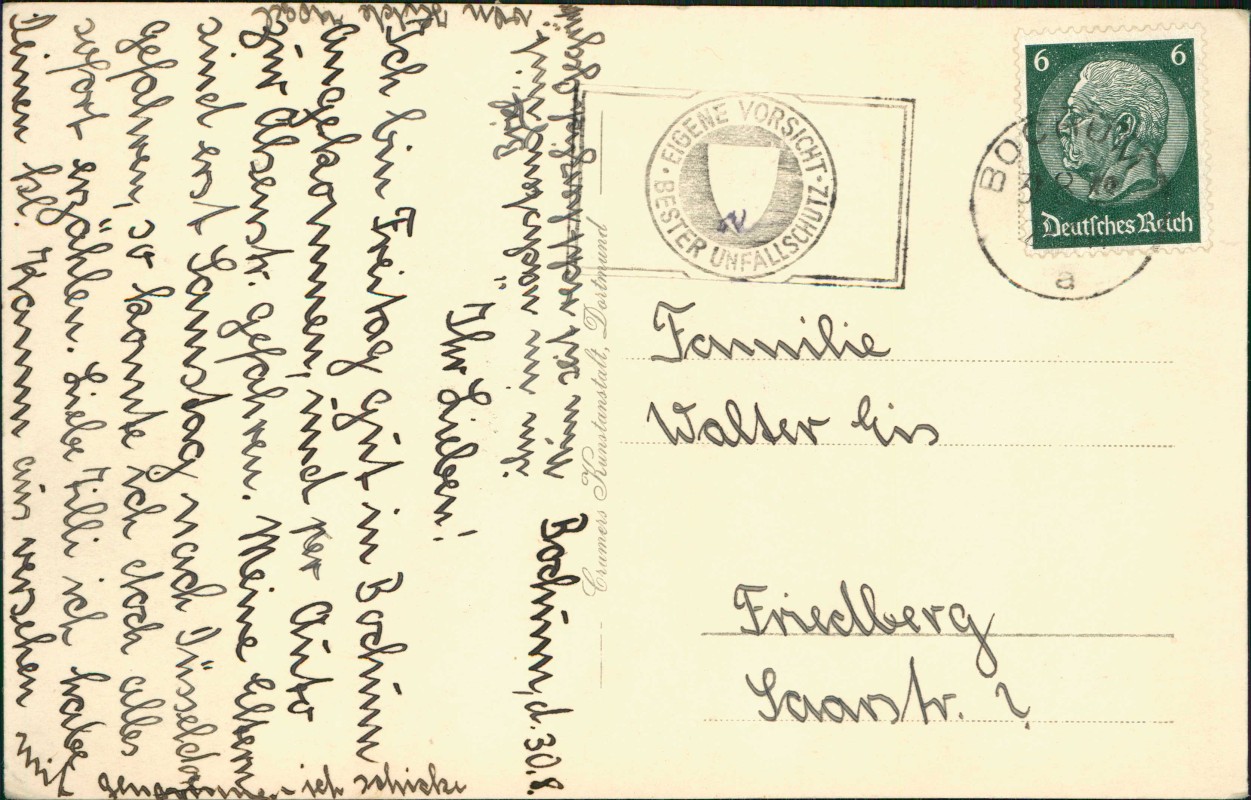 Bochum, d. 30.8.
Ihr Lieben!
Ich bin Freitag gut in Bochum
angekommen, und per Auto
zur Alsenstr. gefahren. Meine Eltern
sind erst Samstag nach Düsseldorf
gefahren, so konnte ich doch alles
sofort erzählen. Liebe Tilli ich habe
Deinen bl. Kamm aus versehen mit
genommen ich schicke
EIGENE VORSICHT · BESTER UNFALLSCHUTZ
BOCHUM
a
6 6
Deutsches Reich
Cramers Kunstanstalt, Dortmund
Familie
Walter
Friedberg
Saarstr. 2